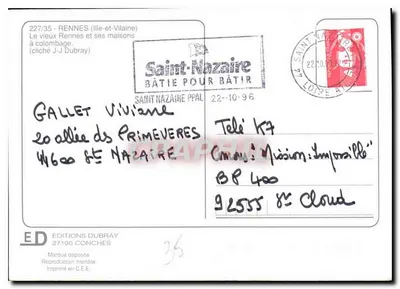 227/35 - RENNES (Ille-et-Vilaine)
Le vieux Rennes et ses maisons
à colombage.
(cliché J-J Dubray)
Saint-Nazaire
BÂTIE POUR BÂTIR
SAINT NAZAIRE PPAL 22-10-96
GALLET Viviane
20 allée des PRIMEVERES
44600 St NAZAIRE
Télé K7
"Mission: Impossible"
BP 400
92555 St Cloud
ED EDITIONS DUBRAY
27190 CONCHES
Marque déposée
Reproduction interdite
Imprimé en C.E.E.
35